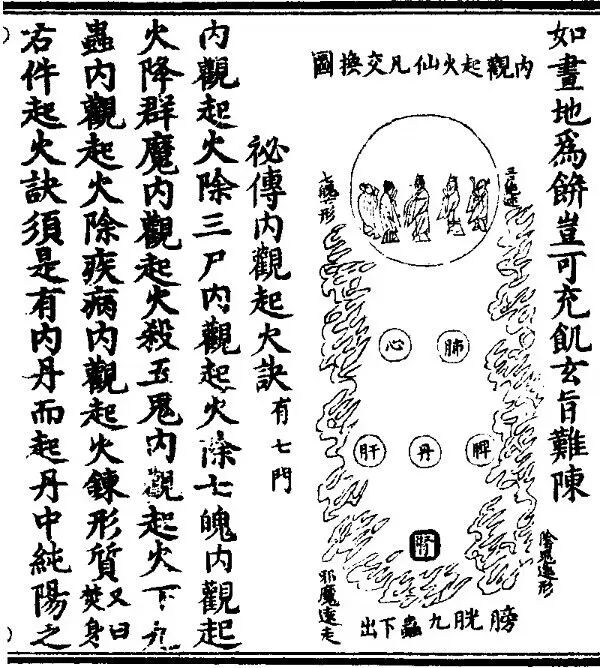 如畫地爲餅豈可充飢玄旨難陳
內觀起火仙凡交換圖
肺
心
脾
丹
肝
腎
邪魔遠走
膀胱九蟲下出
祕傳內觀起火訣有七門
內觀起火除三尸內觀起火除七魄內觀起
火降群魔內觀起火殺五鬼內觀起火下九
蟲內觀起火除疾病內觀起火鍊形質又曰焚身
右件起火訣須是有內丹而起丹中純陽之